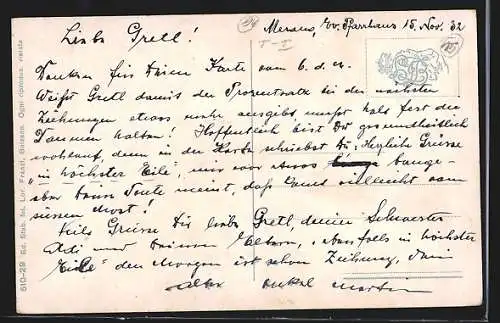 Meran, ev. Pfarrhaus 15. Nov. 32
Liebe Gretl!
Danken für Deine Karte vom 6. d. M.
Weißt Gretl damit der Prozentsatz in den nächsten
Ziehungen etwas mehr ausgibt mußt halt fest den
Daumen halten! Hoffentlich bist Du gesundheitlich
wohlauf, denn in der Karte schriebst Du: Herzliche Grüsse
„in höchster Eile", mir war etwas bange
aber Deine Tante meint, daß vielleicht vom
süssen Most!
Viele Grüsse Dir liebe Gretl, deiner Schwester
Adi und Deinen Eltern, ebenfalls in höchster
Eile denn Morgen ist schon Ziehung, Dein
alter Onkel Martin
510-29 Ed. Stab. fot. Lor. Fränzl, Bolzano. Ogni riproduz. vietata